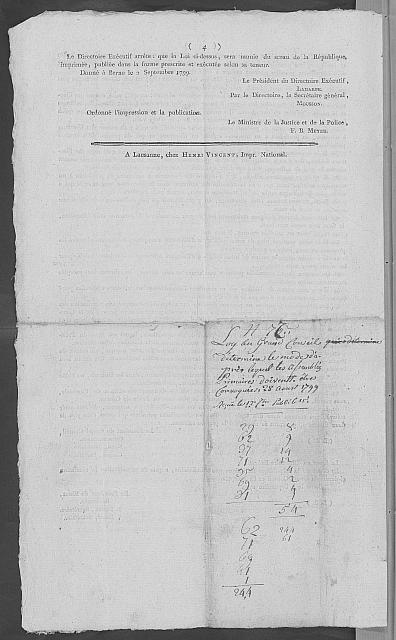 ( 4 )
Le Directoire Exécutif arrête: que la Loi ci-dessus, sera munie du sceau de la République,
imprimée, publiée dans la forme prescrite et exécutée selon sa teneur.
Donné à Berne le 2 Septembre 1799.
Le Président du Directoire Exécutif,
LAHARPE.
Par le Directoire, le Secrétaire général,
MOUSSON.
Ordonné l'impression et la publication.
Le Ministre de la Justice et de la Police,
F. B. MEYER.
A Lausanne, chez HENRI VINCENT, Impr. National.
Loy du Grand Conseil
détermine le mode d'a-
près lequel les assemblées
Primaires doivent être
Convoquées. 28 aoust 1799
29 8
62 9
37 14
71 12
35 4
69 2
4
54
62 244
71 61
69
1
244